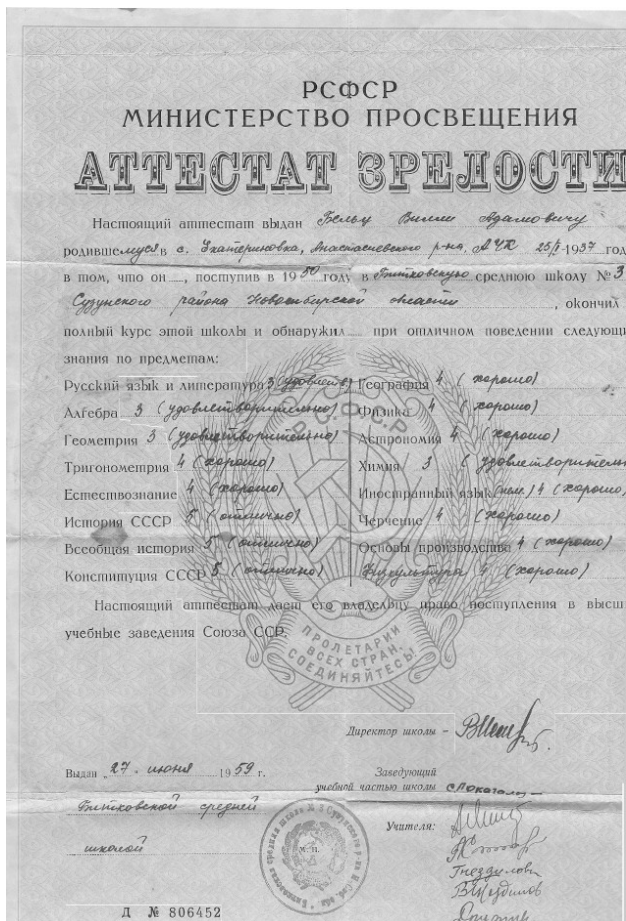 РСФСР
МИНИСТЕРСТВО ПРОСВЕЩЕНИЯ
АТТЕСТАТ ЗРЕЛОСТИ
Настоящий аттестат выдан Бельц Вилли Адамовичу
родившемуся в с. Екатериновка, Анастасиевского р-на, АЧК 25/I-1937 год
в том, что он, поступив в 1950 году в Битковскую среднюю школу № 3
Сузунского района Новосибирской области, окончил
полный курс этой школы и обнаружил при отличном поведении следующи
знания по предметам:
Русский язык и литература 3 (удовлетв)
Алгебра 3 (удовлетворительно)
Геометрия 3 (удовлетворительно)
Тригонометрия 4 (хорошо)
Естествознание 4 (хорошо)
История СССР 5 (отлично)
Всеобщая история 5 (отлично)
Конституция СССР 5 (отлично)
География 4 (хорошо)
Физика 4 (хорошо)
Астрономия 4 (хорошо)
Химия 3 (удовлетворительн
Иностранный язык (нем.) 4 (хорошо)
Черчение 4 (хорошо)
Основы производства 4 (хорошо)
Физкультура 4 (хорошо)
Р.С.Ф.С.Р
ПРОЛЕТАРИИ
ВСЕХ СТРАН,
СОЕДИНЯЙТЕСЬ!
Настоящий аттестат дает его владельцу право поступления в высш
учебные заведения Союза ССР.
Директор школы –
Выдан „27" июня 1959 г.
Битковской средней
школой
Заведующий
учебной частью школы
Учителя:
Гнездилова
М. П.
Д № 806452